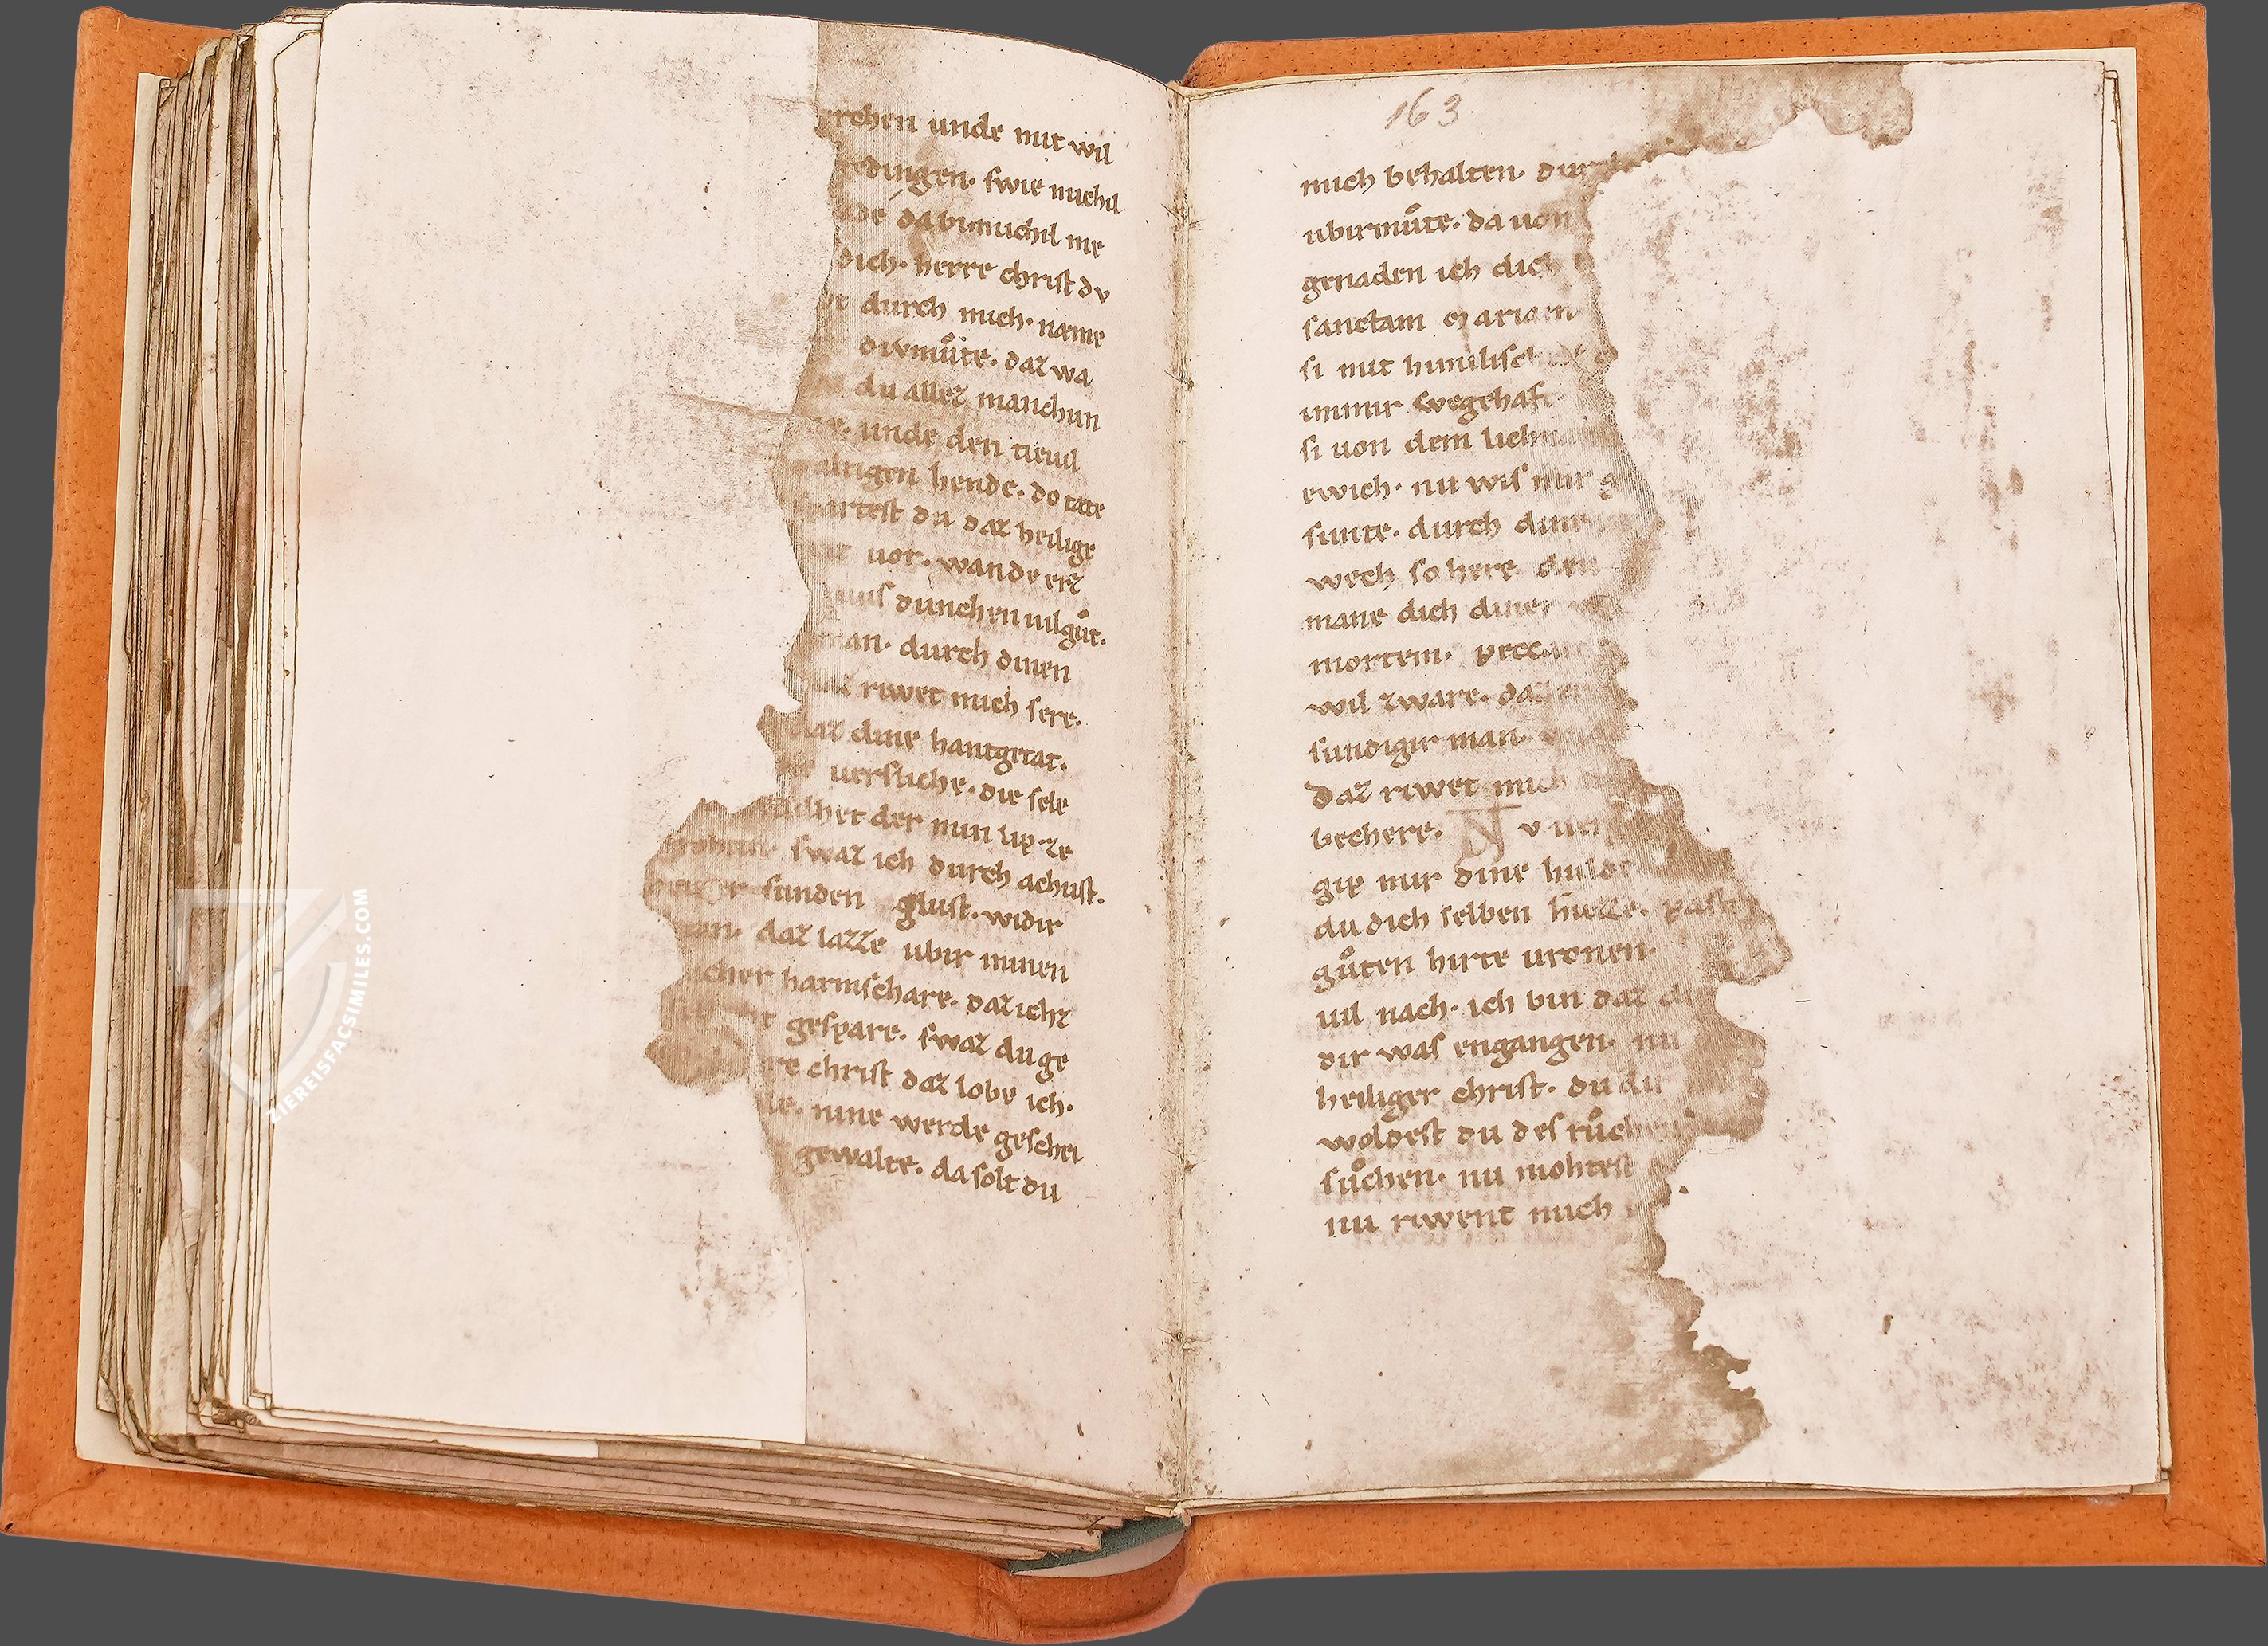 rchen unde mit wil
edingen· swie michil
ade da bimichil me
dich· herre christ dv
durch mich· næme
diemuͦte· daz wa
du allez manchun
ne· unde den tieuil
altigen hende· do tæte
spartest du daz heilige
uor· wande erz
uns dunchen uil guͦt·
man· durch dinen
riwet mich sere·
daz dine hantgetat·
uersuche· die sele
der min lip ze
swaz ich durch achust·
sunden glust· widir
an· daz lazze ubir minen
icher harmschare· daz ichz
gespare· swaz du ge
re christ daz lobe ich·
le· nine werde geschei
gewalte· da solt du
163
mich behalten· durch
ubirmuͦte· da uon
genaden ich dich
sanctam Mariam
si mit himilisch
immir wegehaf
si uon dem lichna
ewich· nu wis mir g
sunte· durch dine
wech so here den
mane dich diner
mortem· pecca
wil zware· daz
sundigir man·
daz riwet mich
bechere· N v uer
gip mir dine hulde
du dich selben hiezze· pasto
guͦten hirte uronen·
uil nach· ich bin daz
dir was engangen· nu
heiliger christ· du du
woldest du des ruͦchen
suͦchen· nu mohtest
nu riwent mich
ZIEREISFACSIMILES.COM